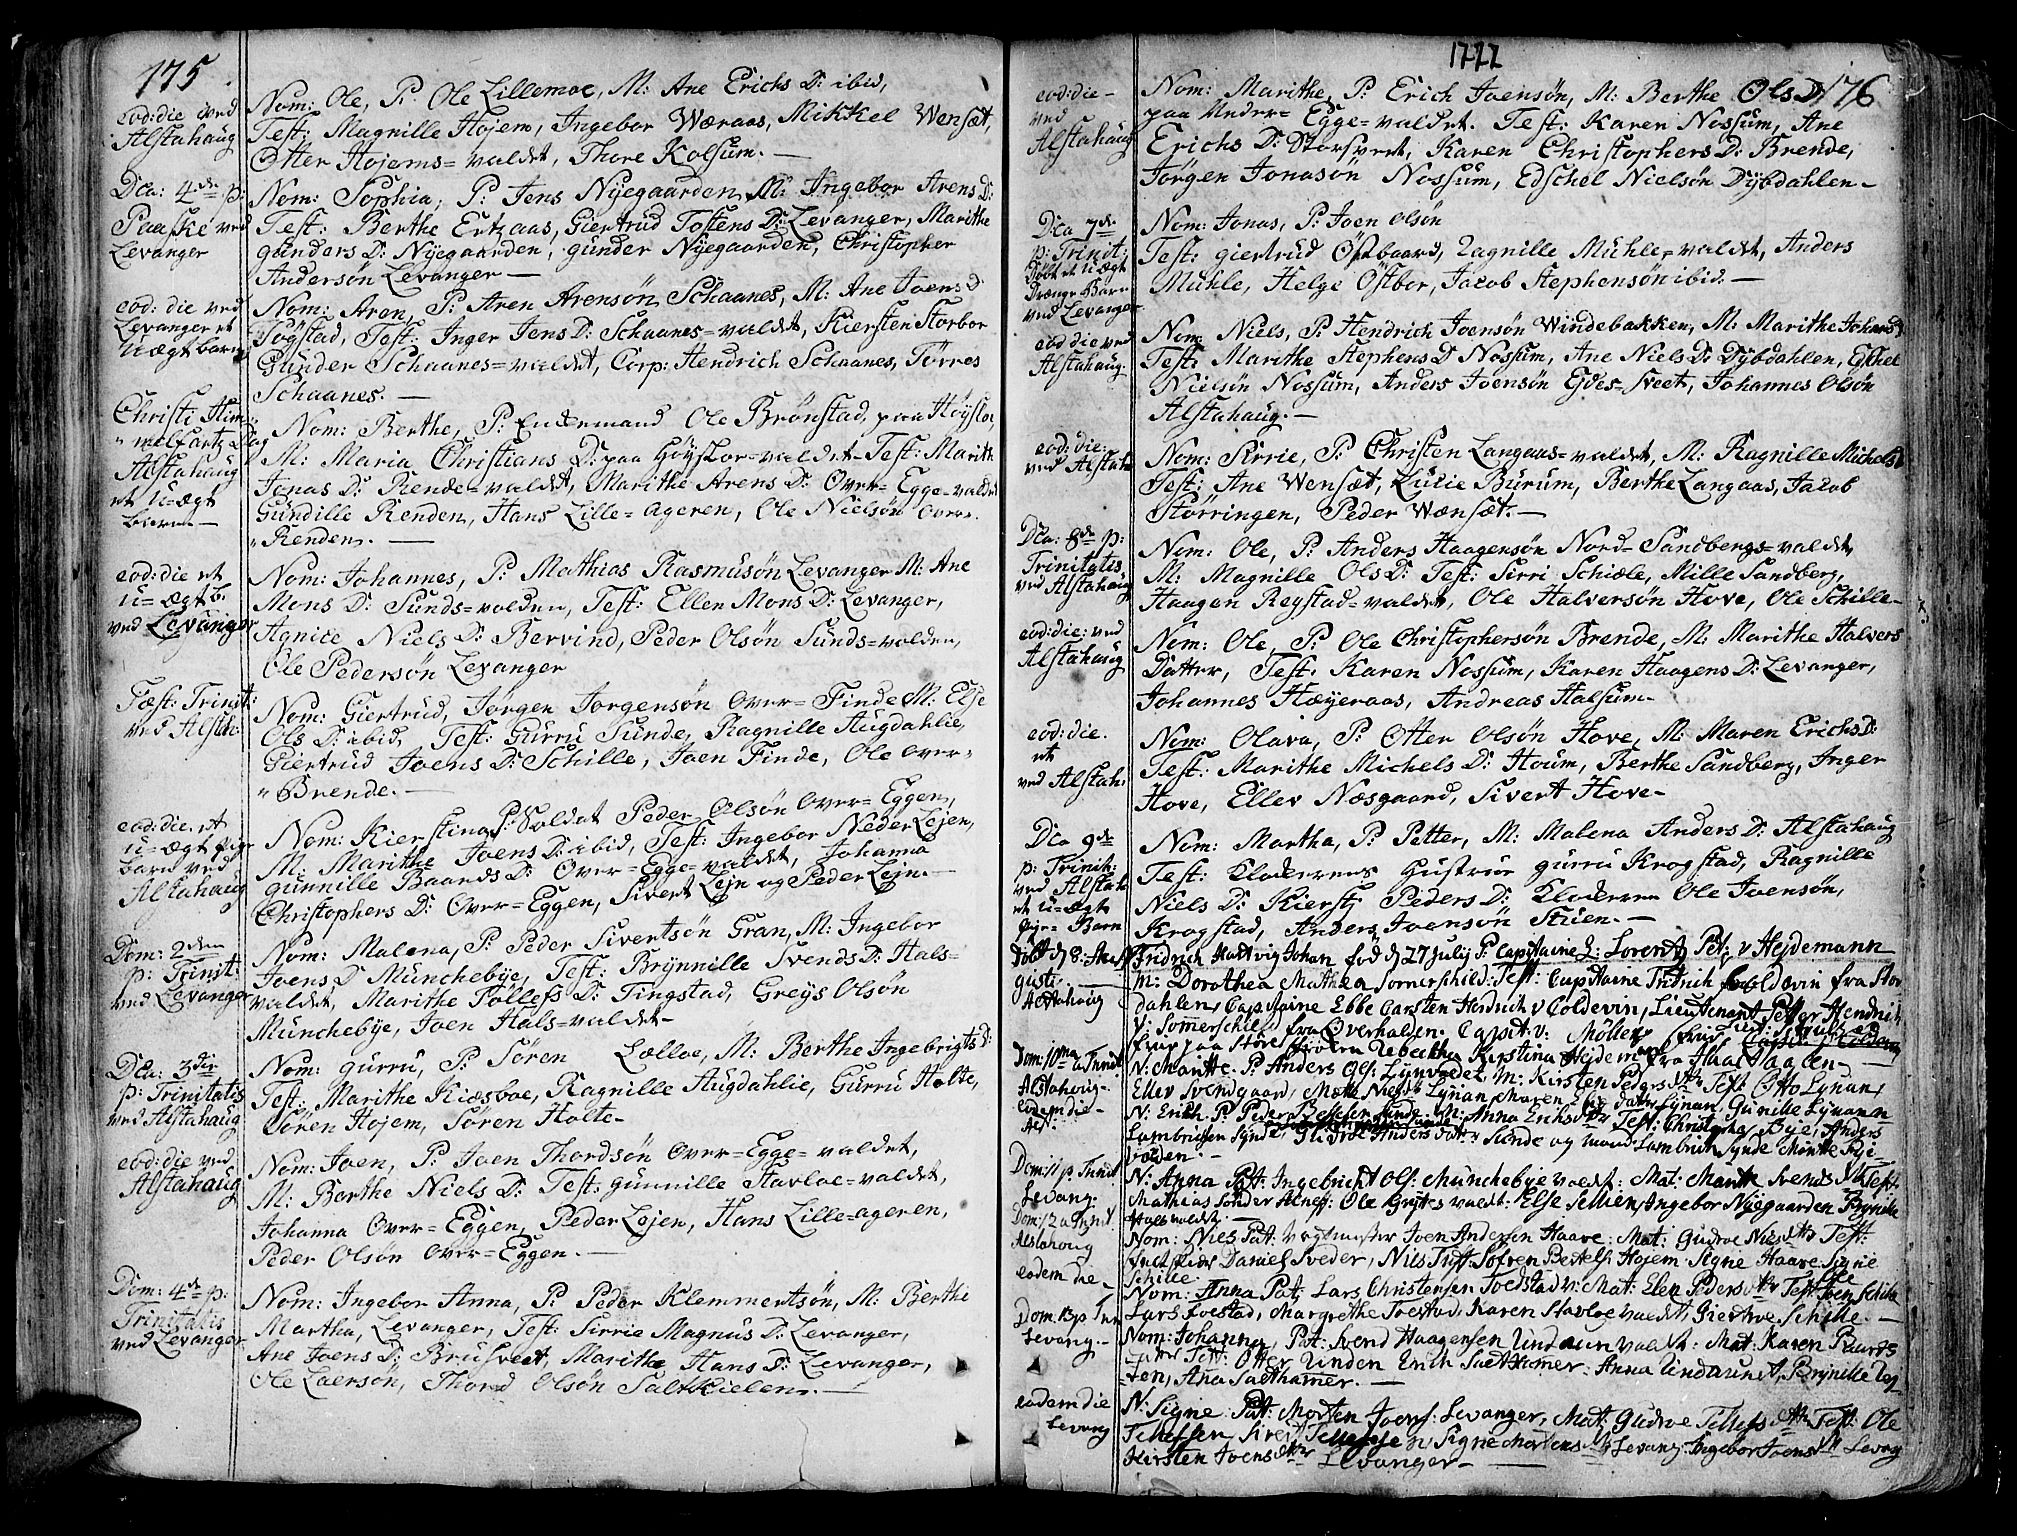 175
eod: die ved
Alstahaug
Nom: Ole, P: Ole Lillemoe, M: Ane Erichs D: ibid,
Test: Magnille Hojem, Ingebor Wæraas, Mikkel Wensæt,
Otter Hojems=valdet, Thore Kolsum. —
Dca: 4de p:
Paaske ved
Levanger
Nom: Sophia, P: Jens Nyegaarden, M: Ingebor Arens D:
Test: Berthe Ertzaas, Giertrud Tostens D: Levanger, Marithe
gunders D: Nyegaarden, gunder Nyegaarden, Christopher
Andersøn Levanger —
eod: die ved
Levanger et
U=ægt barn
Nom: Aren, P: Aren Arensøn Schaanes, M: Ane Joens D
Togstad, Test: Inger Jens D: Schaanes=valdet, Kiersten Storbor
Gunder Schaanes=valdet, Corp: Hendrich Schaanes, Törres
Schaanes. —
Christi Him=
melfartz Dag
Alstahaug
et U=ægt
barn —
Nom: Berthe, P: Enkemand Ole Brønstad, paa Höyslo,
M: Maria Christians D: paa Höyslor=valdet Test: Marith
Jonas D: Rende=valdet, Marithe Arens D: Over=Egge=valdet
Gundille Renden, Hans Lille=ageren, Ole Nielsøn over=
Renden. —
eod: die et
u=ægt b:
ved Levanger
Nom: Johannes, P: Mathias Rasmusøn Levanger M: Ane
Mons D: Sunds=valden, Test: Ellen Mons D: Levanger,
Agnice Niels D: Bervind, Peder Olsøn Sunds=valden,
Ole Pedersøn Levanger
Fæst: Trinit:
ved Alstah:
Nom: Giertrud, Jørgen Jorgensøn over=Finde M: Else
Ols D: ibid, Test: Gurru Sunde, Ragnille Augdahlie,
Giertrud Joens D: Schille, Joen Finde, Ole over=
Brende. —
eod: die et
u=ægt pige
barn ved
Alstahaug
Nom: Kierstina, P: Soldat Peder Olsøn over=Eggen,
M: Marithe Joens D: ibid, Test: Ingebor Neder Lejen,
gunnille Baards D: Over=Egge=valdet, Johanna
Christophers D: Over=Eggen, Sivert Lejn og Peder Lejn. —
Dom: 2den
p: Trinit:
ved Levanger
Nom: Malena, P: Peder Sivertsön Gran, M: Ingebor
Joens D Münchebye, Test: Brynnille Svends D: Hals=
valdet, Marithe Tölless D: Tingstad, Greys Olsøn
Münchebye, Joen Hals=valdet —
Dca: 3die
p: Trinitatis
ved Alstahaug
Nom: gurru, P: Sören Lælloe, M: Berthe Ingebrigts D:
Test: Marithe Kiæsboe, Ragnille Augdahlie, Gurru Holte,
Sören Hojem, Sören Holte —
eod: die ved
Alstahaug
Nom: Joen, P: Joen Thordsön over=Egge=valdet,
M: Berthe Niels D: Test: gunnille Stavloe=valdet,
Johanna Over=Eggen, Peder Lejen, Hans Lille=ageren,
Peder Olsøn over=Eggen. —
Dom: 4de p:
Trinitatis
ved Levanger
Nom: Ingebor Anna, P: Peder Klemmertsön, M: Berthe
Martha, Levanger, Test: Sirrie Magnus D: Levanger,
Ane Joens D: Brusveet, Marithe Hans D: Levanger,
Ole Laersön, Thord Olsøn Saltkielen. —
1777
176
eod: die —
ved
Alstahaug
Nom: Marithe, P: Erich Joensøn, M: Berthe Ols D
paa Under=Egge=valdet. Test: Karen Nossum, Ane
Erichs D: Storsvet, Karen Christophers D: Brende,
Jörgen Jonasön Nossum, Edschel Nielsön Dybdahlen —
Dca 7de
p: Trinit:
Döbt et U=ægt
Drænge Barn
ved Levanger
Nom: Jonas, P: Joen Olsøn
Test: giertrud Ostbaard, Magnille Mühle=valdet, Anders
Mühle, Helge Östbor, Jacob Stephensön ibid. —
eod die ved
Alstahaug.
Nom: Niels, P: Hendrich Joensøn Windebakken, M: Marithe Johans D
Test: Marithe Stephens D Nossum, Ane Niels D: Dybdahlen, Eskel
Nielsön Nossum, Anders Joensön Ejdes=sveet, Johannes Olsön
Alstahaug. —
eod: die:
ved Alstah
Nom: Sirrie, P: Christen Langaas=valdet, M: Ragnille Michels D
Test: Ane Wensæt, Lucie Burum, Berthe Langaas, Jacob
Störringen, Peder Wænsæt. —
Dca: 8de p:
Trinitatis
ved Alstahaug
Nom: Ole, P: Anders Haagensön Nord=Sandbergs=valdet,
M: Magnille Ols D: Test: Sirri Schiæle, Mille Sandberg,
Haagen Regstad=valdet, Ole Halversön Hove, Ole Schille —
eod: die: ved
Alstahaug
Nom: Ole, P: Ole Christophersøn Brende, M: Marithe Halvers
Datter, Test: Karen Nossum, Karen Haagens D: Levanger,
Johannes Hæyeraas, Andreas Halsum —
eod: die.
et
ved Alstah.
Nom: Olava, P: Otter Olsön Hove, M: Maren Erichs D:
Test: Marithe Michels D: Houm, Berthe Sandberg, Inger
Hove, Ellev Næsgaard, Sivert Hove —
Dca 9de
p: Trinit:
ved Alstah
et U=ægt
Pige=Barn
Nom: Martha, P: Petter, M: Malena Anders D: Alstahaug
Test: Klokerens Hustrue gurru Krogstad, Ragnille
Niels D: Kiersty Peders D: Klokeren Ole Joensøn,
Krogstad, Anders Joensøn Stuen. —
Döbt d 8: Au
gusti. —
Alstahoug
Fridrich Hartvig Johan föd d 27 July P: Capitaine L: Lorentz Pet: v Hejdemann
M: Dorothea Mathea Somerschild: Test: Capitaine Fridrich Coldevin fra Stor
dahlen, Capitaine Ebbe Carsten Hendrich v Coldevin, Lieutenant Petter Hendrich
V: Sommerschild fra Overhalden. Capit: v: Møllers frue
Rebectha Kirstina Hejdeman fra Haarskaalen —
Dom: 10ma a Trinit
Alstahoug.
N: Maritte. P: Anders Ols: Lynvaldet M: Kirsten Peders dtr Test: Otto Lynan,
Ellev Svendgaard, Mætte Niels dtr Lynan Maren Ols datr Lynan, Gunille Lynan
Eodem die —
Alst:
N: Erich P: Peder Bertelsen Sunde. M: Anna Eriks dtr Test: Christophe Bye, Anders
Lambrichsen Synde, Gudroe Anders datr Sunde og Lambrich Synde Maritte Bye=
volden. —
Dom: 11 p Trinit
Levang:
N: Anna Pat: Ingebricht Ols: Münchebye valdet: Mat: Maritte Svends dtr Test:
Mathias Ole Grytes valdet: Else Ingebor Nyegaarden Brynille
Hals valdet. —
Dom: 12 a Trinit.
Alstahoug
Nom: Niels Pat: Joen Andersen Haave: Mat: Gudroe Niels dtr Test:
Daniel Sveder, Nils Trøst: Sofren Bertels: Hojem Signe Haave Signe
Schille.
eodem die —
Nom: Anna Pat, Lars Christensen Toedstad v: Mat: Elen Peders dtr Test: Joen Schille
Lars Toestad, Margrethe Trestad, Karen Stavloe valdet, Giertroe Schille. —
Dom. 13 p Tr
Levang. —
Nom: Johanna, Pat: Svend Haagensen Undaun valdt: Mat: Karen Baards
Test: Otter Unden Erich Saethamer: Anna Undaunet, Brynille
Ana Salthamer. —
eodem die
Levang
N: Signe Pat: Morten Joens: Levanger, Mat: Gudroe Tellefs dtr Test: Ole
Tellefsen, Sivert Tellefsen Signe Mortens dtr Levang: Ingebor Joens dtr Levang
Kirsten Joens dtr Levanger —